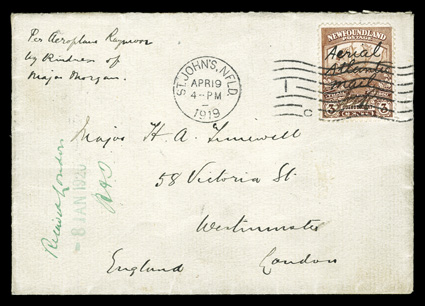 Per Aeroplane Raymor
by Kindness of
Major Morgan.
ST. JOHN'S, NFLD.
APR 19
4-PM
1919
NEWFOUNDLAND
POSTAGE
Aerial
Atlantic
Mail
3 CENTS 3
Major H A Timewell
58 Victoria St.
Westminster
London
England
Received London
8 JAN 1920